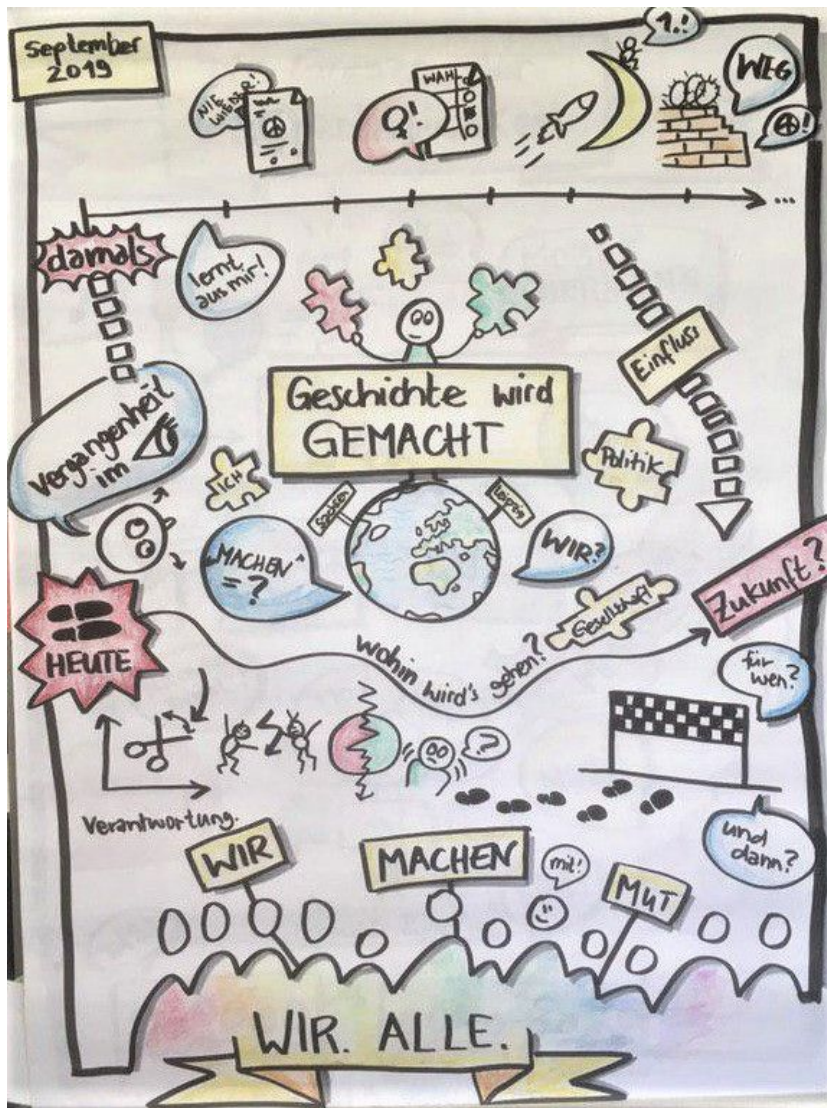 September
2019
NIE
WIEDER!
♀!
WAHL
1.!
WEG
!
...
damals
lernt
aus mir!
Einfluss
Geschichte wird
GEMACHT
Vergangenheit
im
ICH
Politik
Sachsen
Leipzig
„MACHEN“
= ?
WIR?
Zukunft?
Gesellschaft
HEUTE
wohin wird's gehen?
für
wen?
?
Verantwortung.
und
dann?
WIR
MACHEN
mit!
MUT
WIR. ALLE.